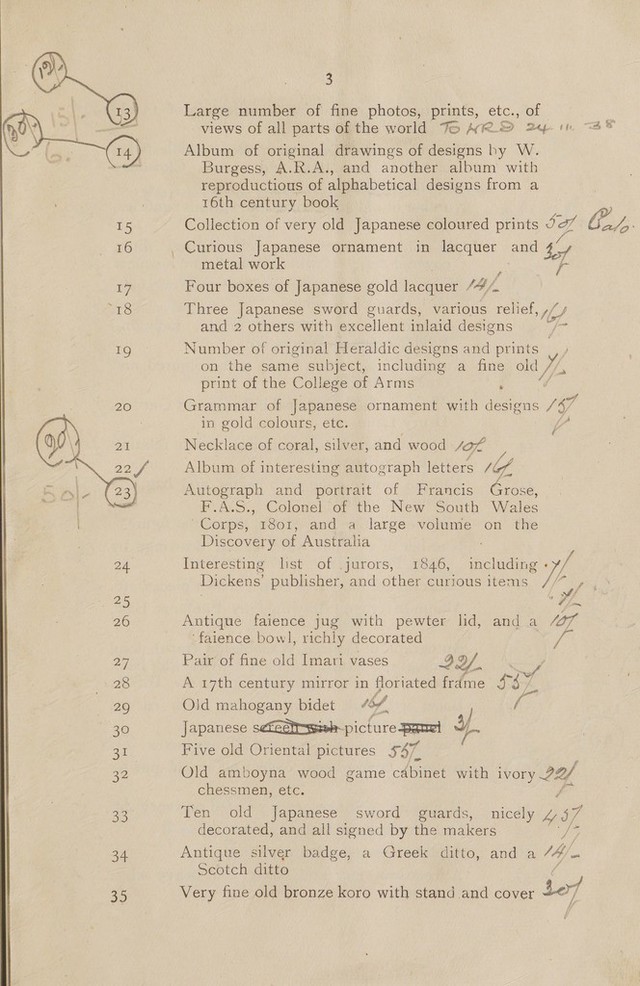 3
12/-
13 Large number of fine photos, prints, etc., of
15/-
views of all parts of the world TO HRD 24 38
14 Album of original drawings of designs by W.
Burgess, A.R.A., and another album with
reproductions of alphabetical designs from a
16th century book
15 Collection of very old Japanese coloured prints
16 Curious Japanese ornament in lacquer and
metal work
17 Four boxes of Japanese gold lacquer 14/-
18 Three Japanese sword guards, various relief,
and 2 others with excellent inlaid designs
19 Number of original Heraldic designs and prints
on the same subject, including a fine old
print of the College of Arms
20 Grammar of Japanese ornament with designs
in gold colours, etc.
21 Necklace of coral, silver, and wood
22 Album of interesting autograph letters
23 Autograph and portrait of Francis Grose,
F.A.S., Colonel of the New South Wales
Corps, 1801, and a large volume on the
Discovery of Australia
24 Interesting list of jurors, 1846, including
Dickens' publisher, and other curious items
25
26 Antique faience jug with pewter lid, and a
faience bowl, richly decorated
27 Pair of fine old Imari vases 22/-
28 A 17th century mirror in floriated frame
29 Old mahogany bidet
30 Japanese screen with picture panel 3/-
31 Five old Oriental pictures
32 Old amboyna wood game cabinet with ivory 22/
chessmen, etc.
33 Ten old Japanese sword guards, nicely
decorated, and all signed by the makers
34 Antique silver badge, a Greek ditto, and a 14/-
Scotch ditto
35 Very fine old bronze koro with stand and cover